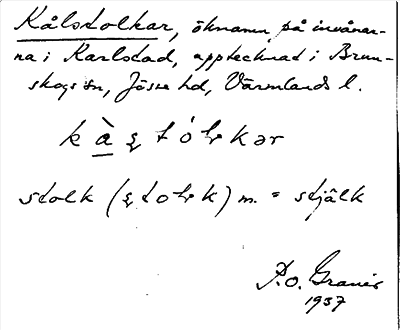 Kålstolkar, öknamn på invånar-
na i Karlstad, upptecknad i Brun-
skogs sn, Jösse hd, Värmlands l.
stolk m. = stjälk
P.O. Granér
1937